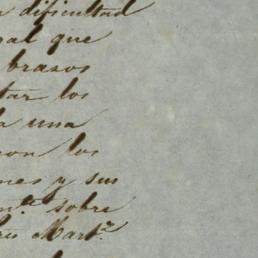 dificultad
al que
brazos
tar los
una
con los
nes y sus
n.te sobre
Mart.z